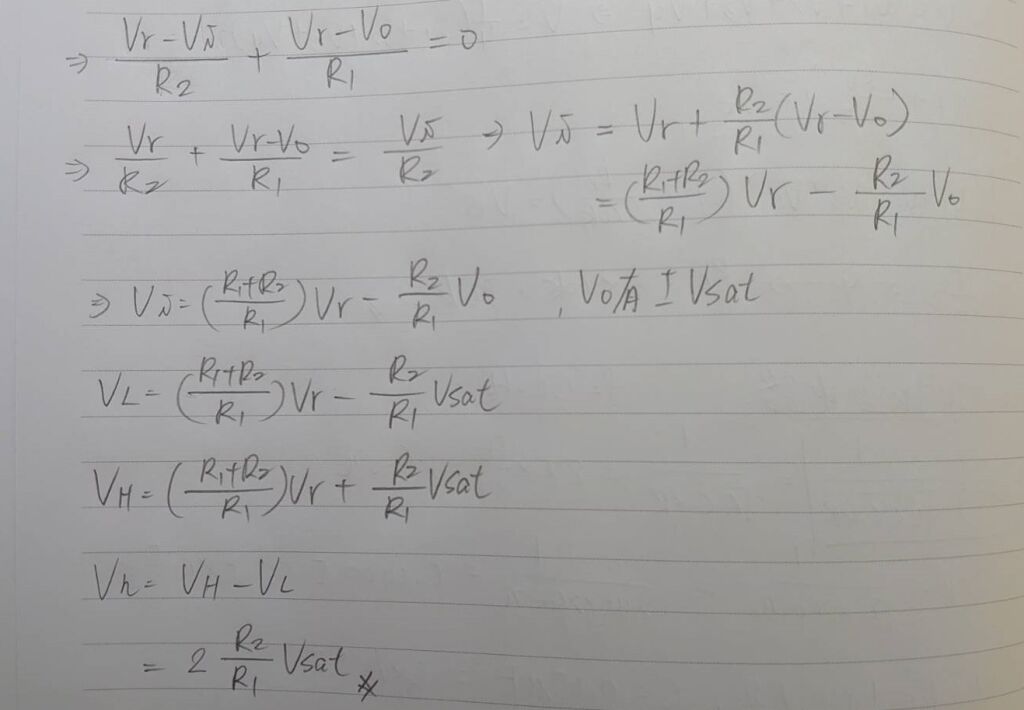 ⇒ (Vr-Vi)/R2 + (Vr-Vo)/R1 = 0
⇒ Vr/R2 + (Vr-Vo)/R1 = Vi/R2 ⇒ Vi = Vr + R2/R1 (Vr-Vo)
= ((R1+R2)/R1) Vr - R2/R1 Vo
⇒ Vi = ((R1+R2)/R1) Vr - R2/R1 Vo , Vo有 ± Vsat
VL = ((R1+R2)/R1) Vr - R2/R1 Vsat
VH = ((R1+R2)/R1) Vr + R2/R1 Vsat
Vh = VH - VL
= 2 R2/R1 Vsat